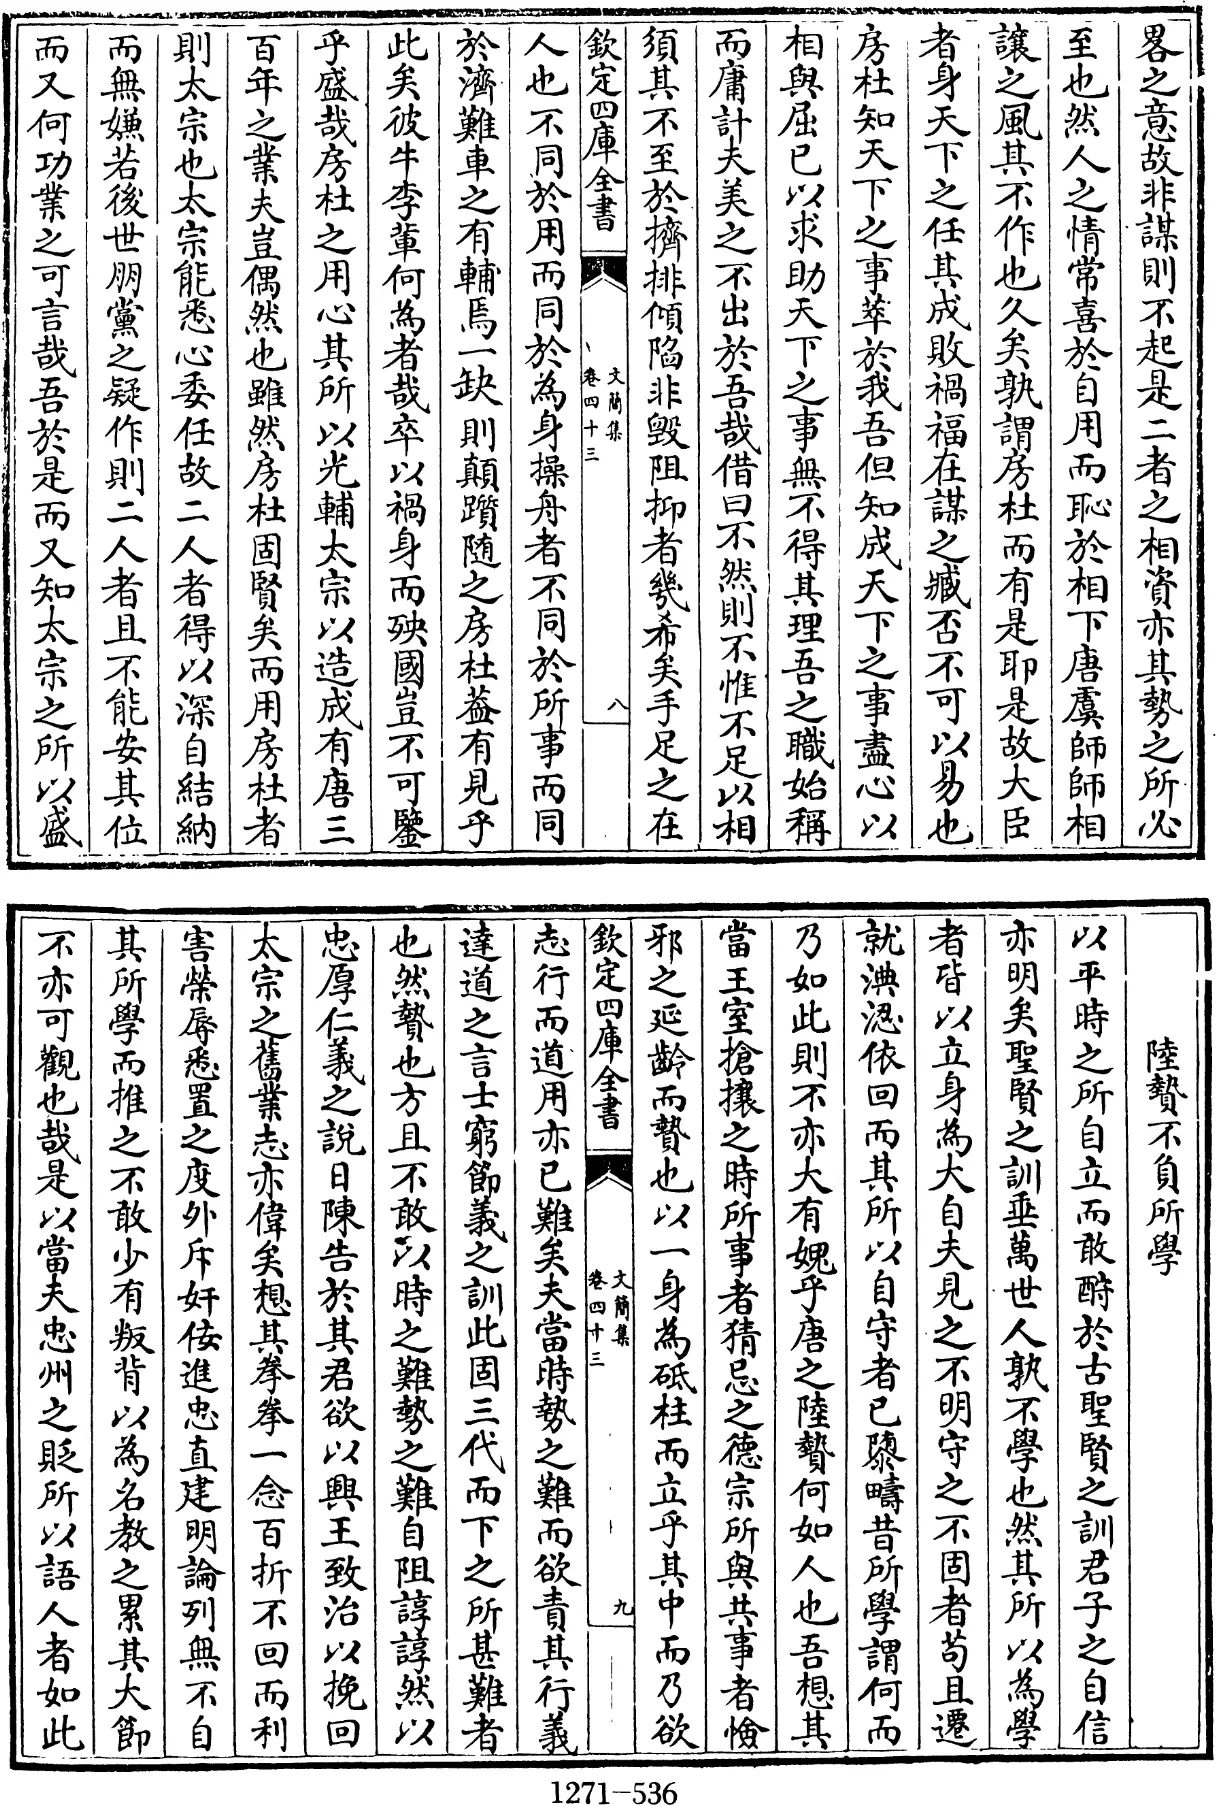 畧之意故非謀則不起是二者之相資亦其勢之所必
至也然人之情常喜於自用而恥於相下唐虞師師相
讓之風其不作也久矣孰謂房杜而有是耶是故大臣
者身天下之任其成敗禍福在謀之臧否不可以易也
房杜知天下之事萃於我吾但知成天下之事盡心以
相與屈已以求助天下之事無不得其理吾之職始稱
而庸計夫美之不出於吾哉借曰不然則不惟不足以相
須其不至於擠排傾陷非毀阻抑者幾希矣手足之在
欽定四庫全書
文簡集
卷四十三
八
人也不同於用而同於為身操舟者不同於所事而同
於濟難車之有輔焉一缺則顛躓随之房杜葢有見乎
此矣彼牛李輩何為者哉卒以禍身而殃國豈不可鑒
乎盛哉房杜之用心其所以光輔太宗以造成有唐三
百年之業夫豈偶然也雖然房杜固賢矣而用房杜者
則太宗也太宗能悉心委任故二人者得以深自結納
而無嫌若後世朋黨之疑作則二人者且不能安其位
而又何功業之可言哉吾於是而又知太宗之所以盛
陸贄不負所學
以平時之所自立而敢酧於古聖賢之訓君子之自信
亦明矣聖賢之訓垂萬世人孰不學也然其所以為學
者皆以立身為大自夫見之不明守之不固者苟且遷
就淟涊依回而其所以自守者已隳疇昔所學謂何而
乃如此則不亦大有媿乎唐之陸贄何如人也吾想其
當王室搶攘之時所事者猜忌之德宗所與共事者憸
邪之延齡而贄也以一身為砥柱而立乎其中而乃欲
欽定四庫全書
文簡集
卷四十三
九
志行而道用亦已難矣夫當時勢之難而欲責其行義
達道之言士窮節義之訓此固三代而下之所甚難者
也然贄也方且不敢以時之難勢之難自阻諄諄然以
忠厚仁義之說日陳告於其君欲以興王致治以挽回
太宗之舊業志亦偉矣想其拳拳一念百折不回而利
害榮辱悉置之度外斥奸佞進忠直建明論列無不自
其所學而推之不敢少有叛背以為名教之累其大節
不亦可觀也哉是以當夫忠州之貶所以語人者如此
1271-536